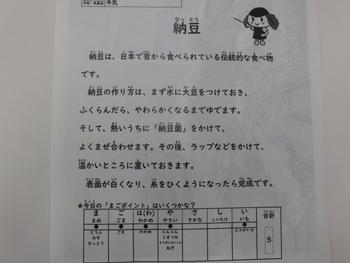 牛乳
なっとう
納豆
納豆は、日本で昔から食べられている伝統的な食べ物
です。
納豆の作り方は、まず水に大豆をつけておき、
ふくらんだら、やわらかくなるまでゆでます。
そして、熱いうちに「納豆菌」をかけて、
よくまぜ合わせます。その後、ラップなどをかけて、
温かいところに置いておきます。
表面が白くなり、糸をひくようになったら完成です。
★今日の「まごポイント」はいくつかな？
ま ご は(わ) や さ し い 合計
まめ ごま わかめ やさい さかな しいたけ いも
● ● ● ● ●
とうふ ごま わかめ にんじん じゃがいも 5
みそ こまつな
なっとう
ねぎ